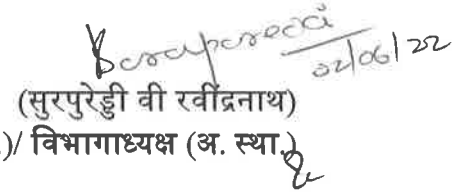 02/06/22
(सुरपुरेड्डी वी रवींद्रनाथ)
)/ विभागाध्यक्ष (अ. स्था.)